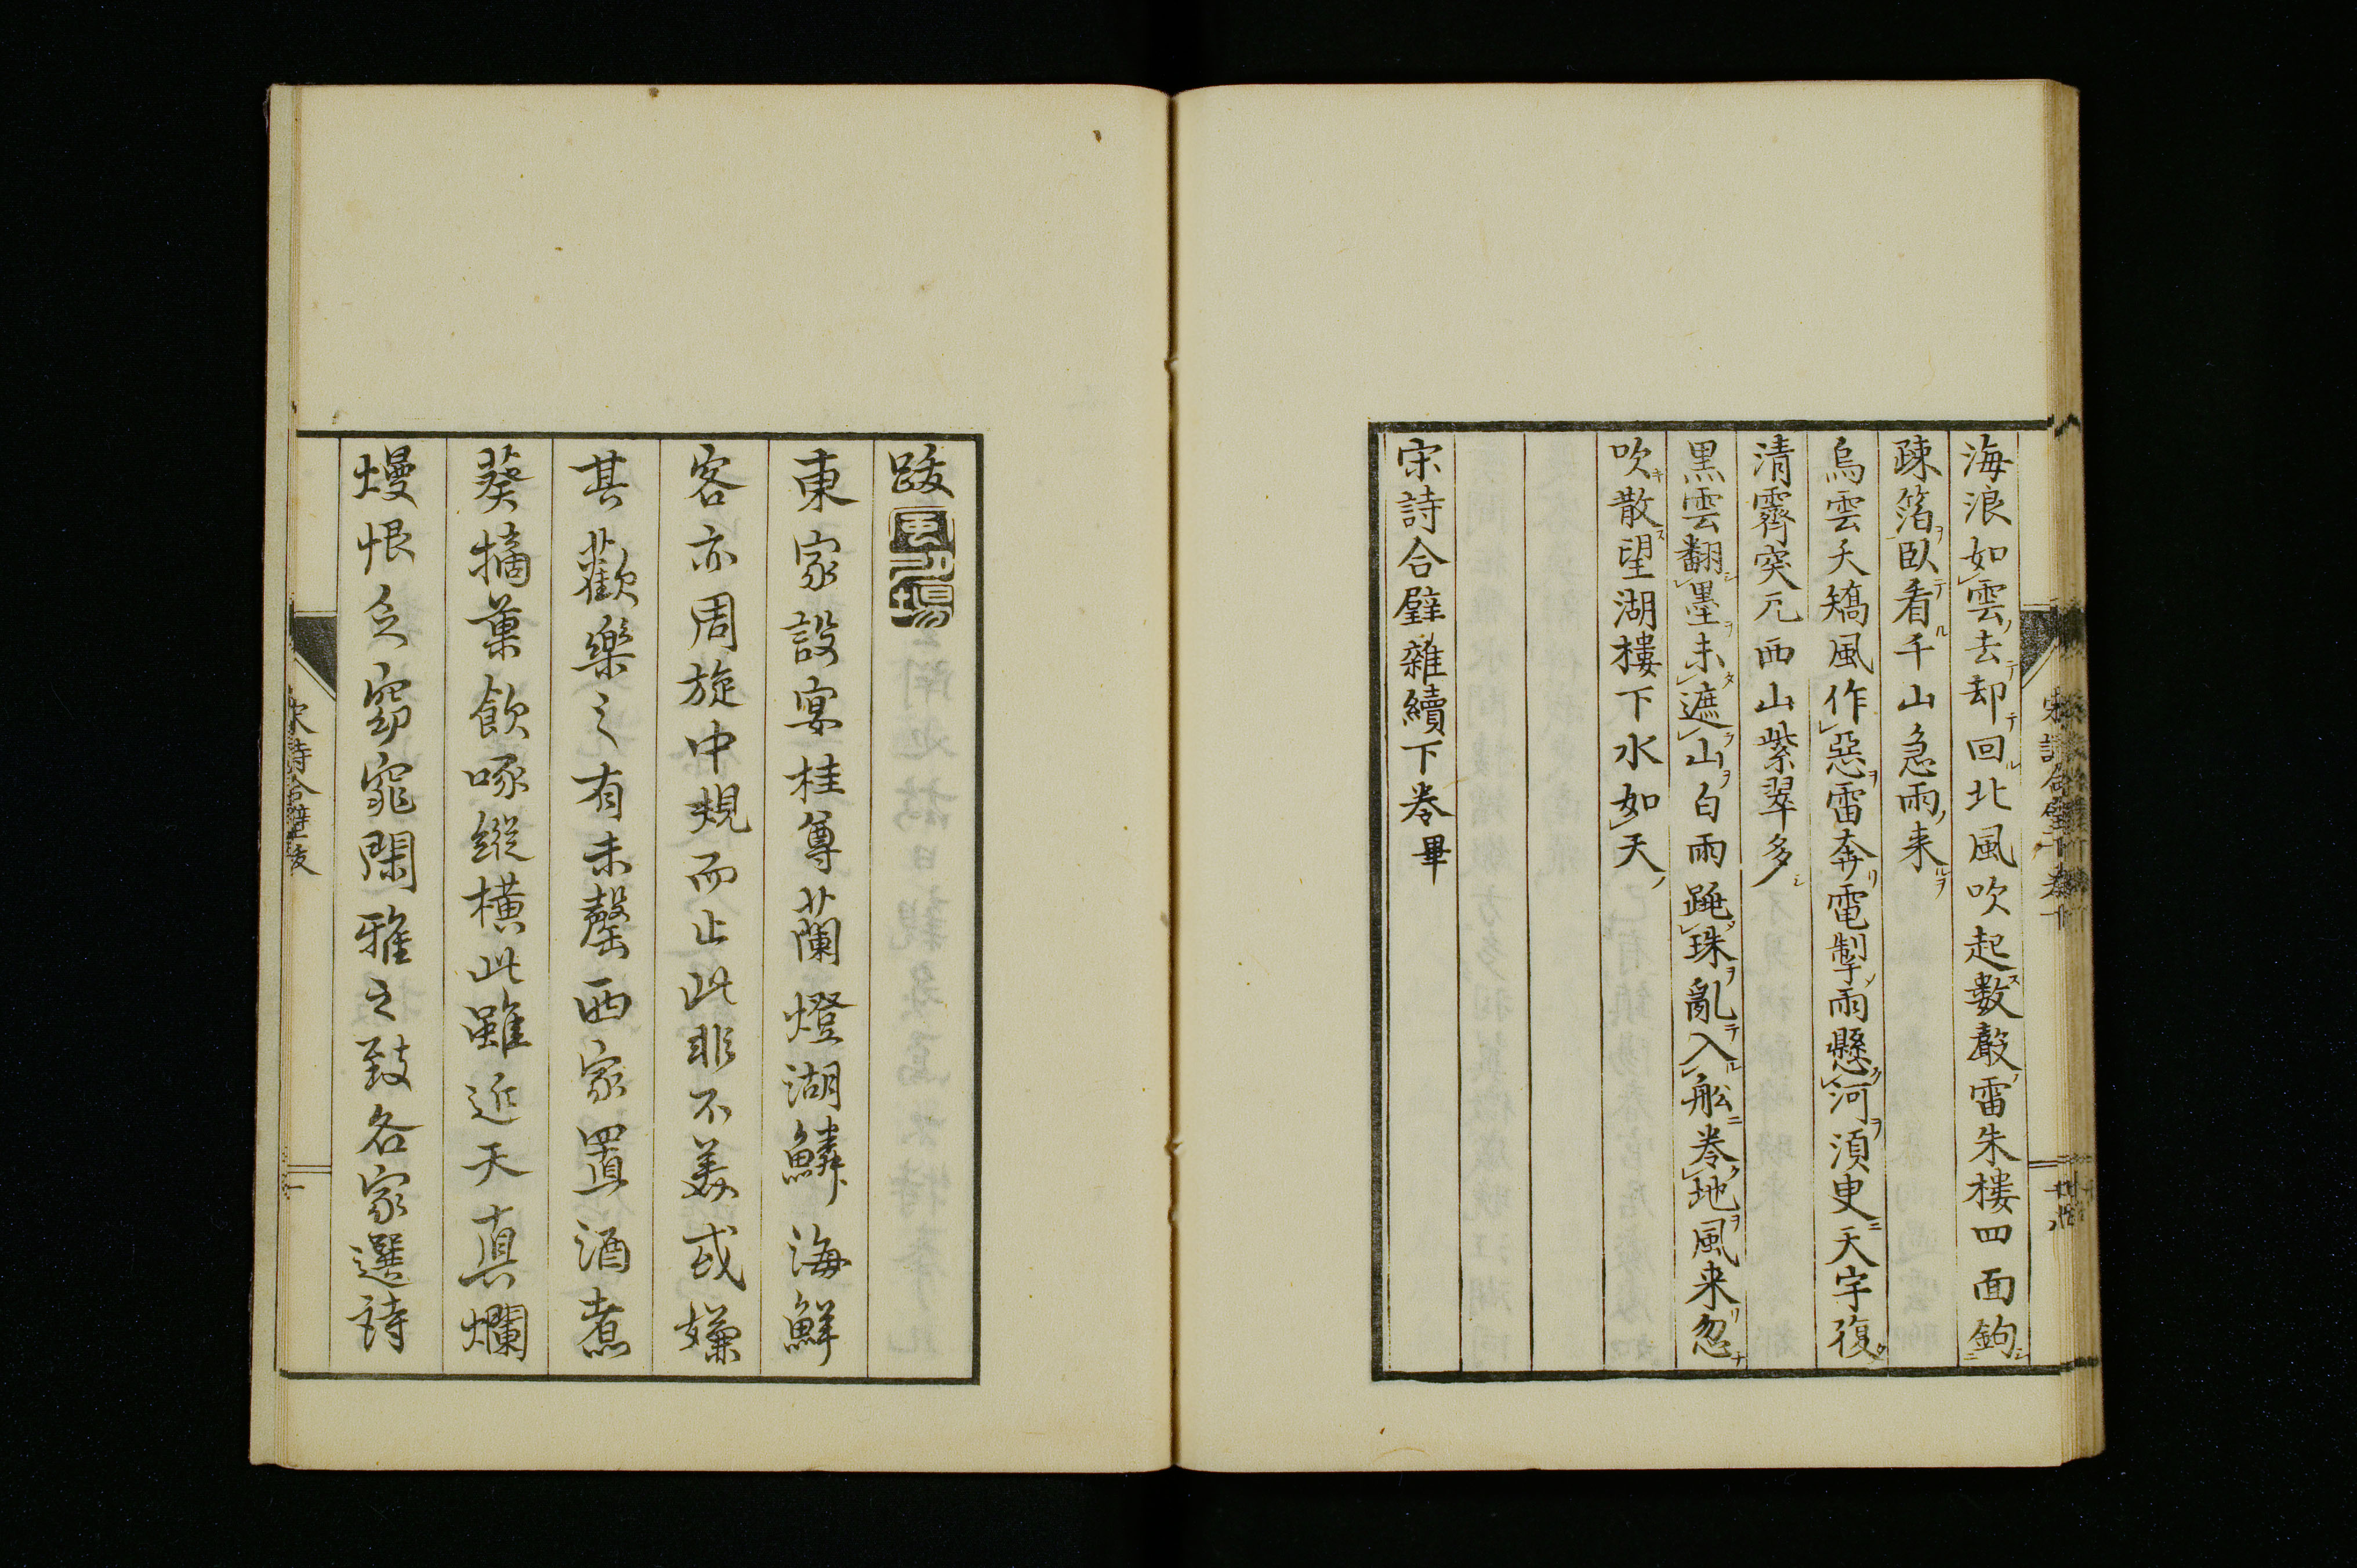 海浪如雲去却回北風吹起數聲雷朱樓四面鉤
疎箔臥看千山急雨來
烏雲夭矯風作惡雷奔電掣雨懸河須臾天宇復
清霽突兀西山紫翠多
黒雲翻墨未遮山白雨跳珠亂入船卷地風来忽
吹散望湖樓下水如天
宋詩合璧雜續下卷畢
跋
東家設宴桂尊蘭燈湖鱗海鮮
客亦周旋中規而止此非不美或嫌
其歡樂之有未罄西家置酒煮
葵摘菓飲啄縱橫此雖近天真爛
熳恨乏窈窕閑雅之致各家選詩
宋詩合璧跋
一